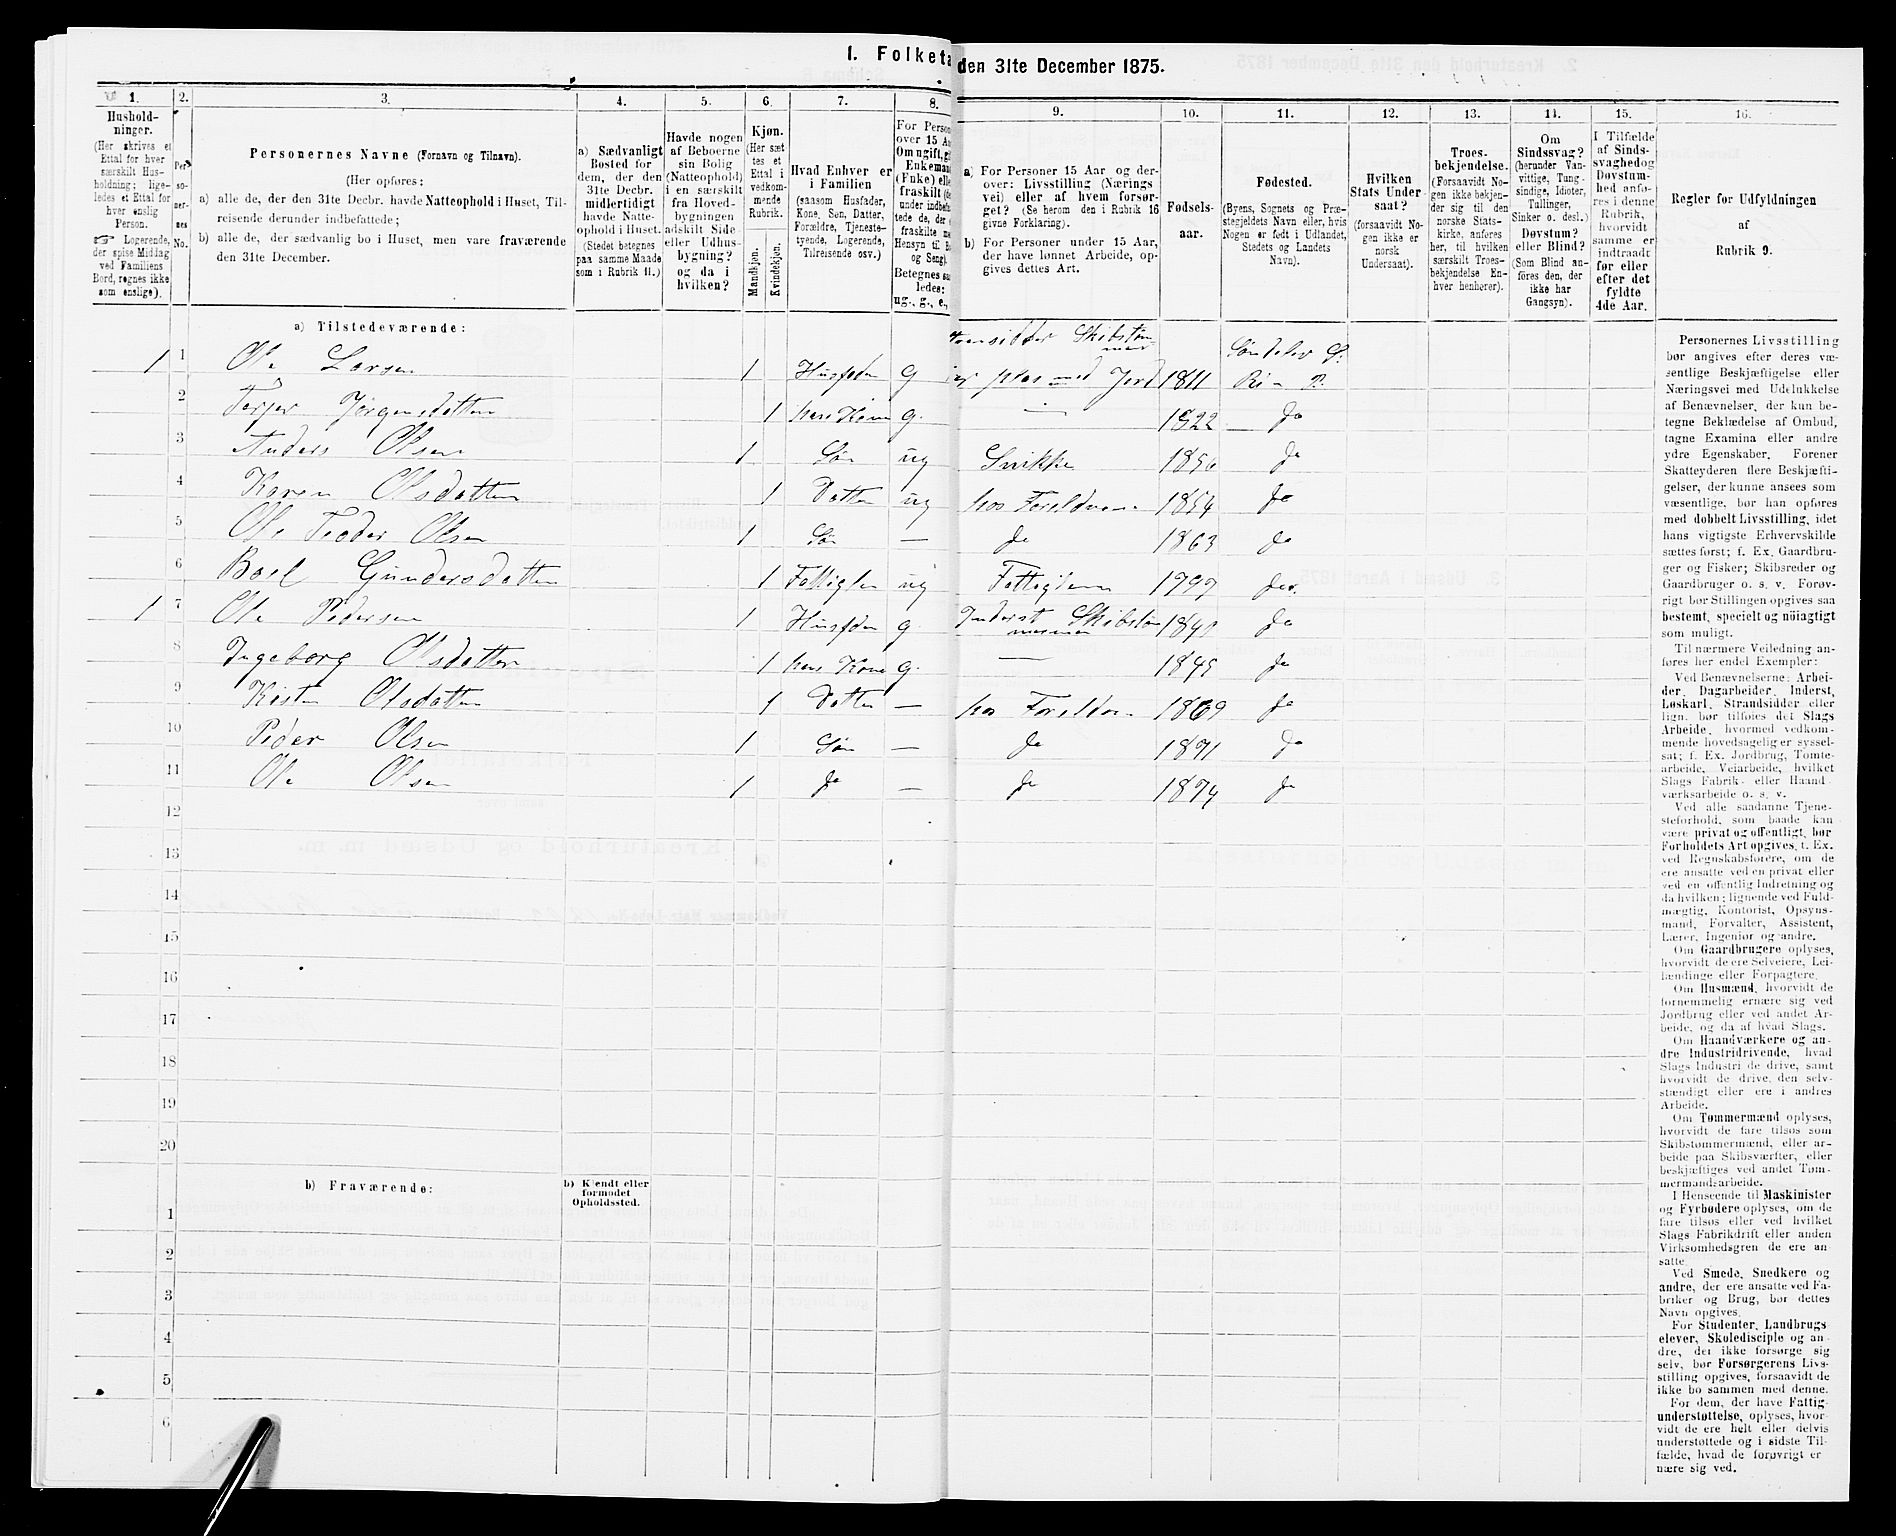 1. Folketa
den 31te December 1875.
1. 2. 3. 4. 5. 6. 7. 8. 9. 10. 11. 12. 13. 14. 15. 16.
Hushold-
ninger.
(Her skrives et
Ettal for hver
særskilt Hus-
holdning; lige-
ledes et Ettal for
hver enslig
Person.
☞ Logerende,
der spise Middag
ved Familiens
Bord, regnes ikke
som enslige).
Per-
so-
ner-
nes
No.
Personernes Navne (Fornavn og Tilnavn).
(Her opføres:
a) alle de, der den 31te Decbr. havde Natteophold i Huset, Til-
reisende derunder indbefattede;
b) alle de, der sædvanlig bo i Huset, men vare fraværende
den 31te December.
a) Sædvanligt
Bosted for
dem, der den
31te Decbr.
midlertidigt
havde Natte-
ophold i Huset.
(Stedet betegnes
paa samme Maade
som i Rubrik 11.)
Havde nogen
af Beboerne
sin Bolig
(Natteophold)
i en særskilt
fra Hoved-
bygningen
adskilt Side-
eller Udhus-
bygning?
og da i
hvilken?
Kjøn.
(Her sæt-
tes et
Ettal i
vedkom-
mende
Rubrik.
Mandkjøn.
Kvindekjøn.
Hvad Enhver er
i Familien
(saasom Husfader,
Kone, Søn, Datter,
Forældre, Tjeneste-
tyende, Logerende,
Tilreisende osv.)
For Person
over 15 Aa
Om ugift, g
Enkeman
(Enke) elle
fraskilt (de
under indbefa
tede de, der
fraskilte m
Hensyn til Bo
og Seng).
Betegnes saa
ledes:
ug., g., e.,
a) For Personer 15 Aar og der-
over: Livsstilling (Nærings
vei) eller af hvem forsør-
get? (Se herom den i Rubrik 16
givne Forklaring).
b) For Personer under 15 Aar,
der have lønnet Arbeide, op-
gives dettes Art.
Fødsels-
aar.
Fødested.
(Byens, Sognets og Præ-
stegjeldets Navn eller, hvis
Nogen er født i Udlandet,
Stedets og Landets
Navn).
Hvilken
Stats Under
saat?
(forsaavidt No-
gen ikke er
norsk
Undersaat).
Troes-
bekjendelse.
(Forsaavidt No-
gen ikke bekjen-
der sig til den
norske Stats-
kirke, anføres
her, til hvilken
særskilt Troes-
bekjendelse En-
hver henhører).
Om
Sindssvag?
(herunder Van-
vittige, Tung-
sindige, Idioter,
Tullinger,
Sinker o. desl.)
Døvstum?
eller Blind?
(Som Blind an-
føres den, der
ikke har
Gangsyn).
I Tilfælde
af Sinds-
svaghedog
Døvstum-
hed anfø-
res i denne
Rubrik,
hvorvidt
samme er
indtraadt
før eller
efter det
fyldte
4de Aar.
Regler for Udfyldningen
af
Rubrik 9.
a) Tilstedeværende:
1 1 Ole Larsen 1 Husfader g 1811
2 Terjer Jørgensdatter 1 hans Kone g. — 1822 do
3 Anders Olsen 1 Søn ug Snikker 1856 do
4 Karen Olsdatter 1 Datter ug hos Foreldrene 1854 do
5 Ole Teoder Olsen 1 Søn — do 1863 do
6 Boel Gundersdatter 1 ug 1797 do
1 7 Ole Pedersen 1 Husfader g. Inderst Skibstøm
mermand 1840 do
8 Ingeborg Olsdatter 1 hans Kone g. — 1845 do
9 Olsdatter 1 Datter — hos Foreldrene 1869 do
10 Peder Olsen 1 Søn — do 1871 do
11 Ole Olsen 1 do — do 1874 do
12
13
14
15
16
17
18
19
20
b) Fraværende:
b) Kjendt eller
formodet
Opholdssted.
1
2
3
4
5
6
Personernes Livsstilling
bør angives efter deres væ-
sentlige Beskjæftigelse eller
Næringsvei med Udelukkelse
af Benævnelser, der kun be-
tegne Beklædelse af Ombud,
tagne Examina eller andre
ydre Egenskaber. Forener
Skatteyderen flere Beskjæfti-
gelser, der kunne ansees som
væsentlige, bør han opføres
med dobbelt Livsstilling, idet
hans vigtigste Erhvervskilde
sættes først; f. Ex. Gaardbru-
ger og Fisker; Skibsreder og
Gaardbruger o. s. v. Forøv-
rigt bør Stillingen opgives saa
bestemt, specielt og nöiagtigt
som muligt.
Til nærmere Veiledning an-
føres her endel Exempler:
Ved Benævnelserne: Arbei-
der, Dagarbeider, Inderst,
Løskarl, Strandsidder eller
lign. bør tilføies det Slags
Arbeide, hvormed vedkom-
mende hovedsagelig er syssel-
sat; f. Ex. Jordbrug, Tomte-
arbeide, Veiarbeide, hvilket
Slags Fabrik- eller Haand-
værksarbeide o. s. v.
Ved alle saadanne Tjene-
steforhold, som baade kan
være privat og offentligt, bør
Forholdets Art opgives, f. Ex.
ved Regnskabsførere, om de
ere ansatte ved en privat eller
ved en offentlig Indretning og
da hvilken; lignende ved Fuld-
mægtig, Kontorist, Opsyns-
mand, Forvalter, Assistent,
Lærer, Ingeniør og andre.
Om Gaardbrugere oplyses,
hvorvidt de ere Selveiere, Lei-
lændinge eller Forpagtere.
Om Husmænd, hvorvidt de
fornemmelig ernære sig ved
Jordbrug eller ved andet Ar-
beide, og da af hvad Slags.
Om Haandværkere og an-
dre Industridrivende, hvad
Slags Industri de drive, samt
hvorvidt de drive den selv-
stændigt eller ere i andres
Arbeide.
Om Tømmermænd oplyses,
hvorvidt de fare tilsøs som
Skibstømmermænd, eller ar-
beide paa Skibsværfter, eller
beskjæftiges ved andet Tøm-
mermandsarbeide.
I Henseende til Maskinister
og Fyrbødere oplyses, om de
fare tilsøs eller ved hvilket
Slags Fabrikdrift eller anden
Virksomhedsgren de ere an-
satte.
Ved Smede, Snedkere og
andre, der ere ansatte ved Fa-
briker og Brug, bør dettes
Navn opgives.
For Studenter, Landbrugs-
elever, Skoledisciple og an-
dre, der ikke forsørge sig
selv, bør Forsørgerens Livs-
stilling opgives, forsaavidt de
ikke bo sammen med denne.
For dem, der have Fattig-
understøttelse, oplyses, hvor-
vidt de ere helt eller delvis
understøttede og i sidste Til-
fælde, hvad de forøvrigt er-
nære sig ved.